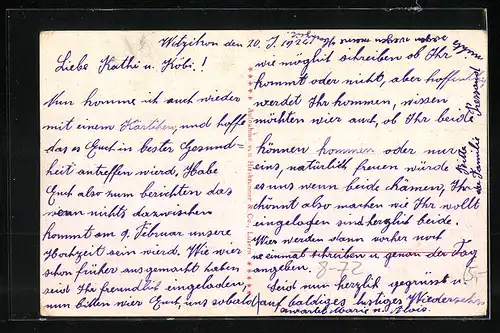 Wetzikon den 20. J. 1924.
Liebe Kathi u. Köbi.!
Nun komme ich auch wieder
mit einem Kärtchen, und hoffe
das es Euch in bester Gesund-
heit antreffen werd, Habe
Euch also zum berichten das
wenn nichts dazwischen
kommt am 9. Februar unsere
Hochzeit sein werd. Wie wir
schon früher ausgemacht haben
seid Ihr freundlich eingeladen,
nun bitten wier Euch, uns sobald
wie möglich schreiben ob Ihr
kommt oder nicht, aber hoffent
werdet Ihr kommen, wissen
möchten wier auch, ob Ihr beide
können kommen oder nur
eins, natürlich freuen würde
es uns wenn beide chämen, Ihr
chönnt also machen wie Ihr wollt
eingeladen sind herzlich beide.
Wier werden dann vorher noch
einmal schreiben u. genau den Tag
angeben.
8-72
Seid nun herzlich gegrüsst u.
auf baldiges lustiges Wiedersehn
erwartet Marie u. Alois.
Bitte
die Familie